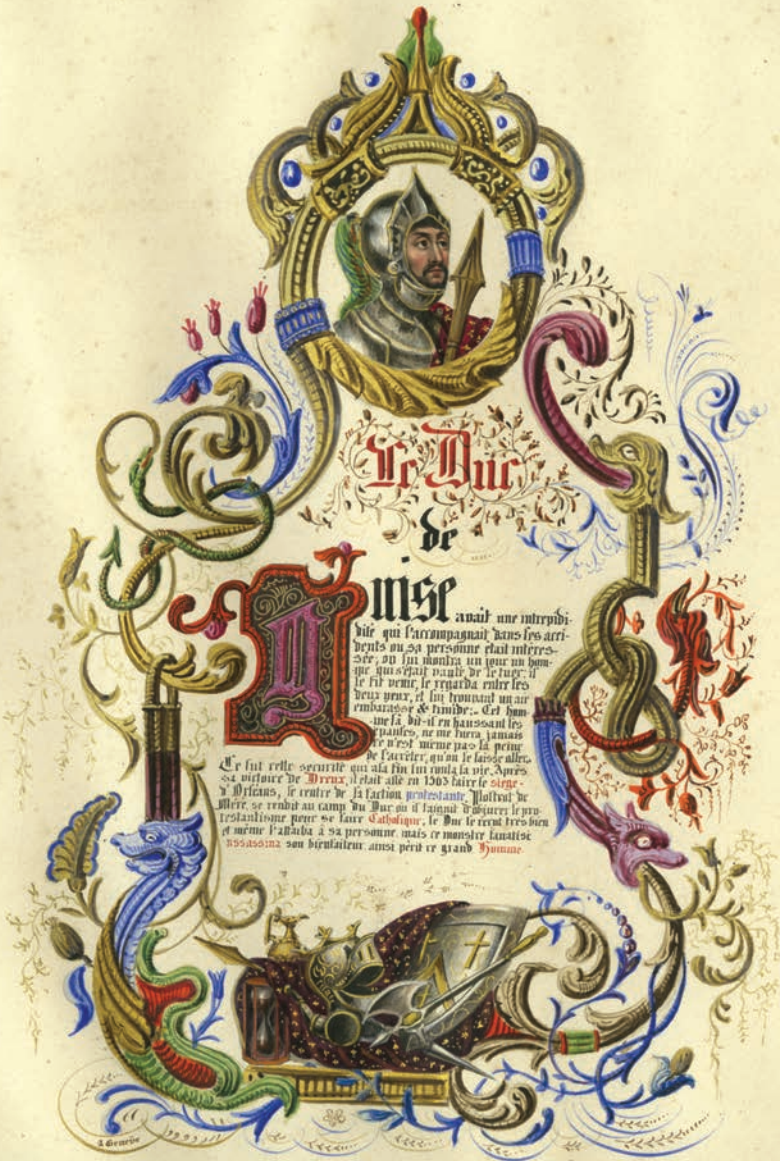 Le Duc
de
Guise avait une intrepidi-
dité qui l'accompagnait dans ses acci-
dents ou sa personne était interes-
sée; on lui montra un jour un hom-
me qui s'était vanté de le tuer: il
le fit venir, le regarda entre les
deux yeux, et lui trouvant un air
embarassé & timide:- Cet hom-
me là, dit-il en haussant les
épaules, ne me tuera jamais
ce n'est même pas la peine
de l'arrêter, qu'on le laisse aller.
Ce fut cette securité qui a la fin lui couta la vie. Après
sa victoire de Dreux, il était allé en 1563 faire le siege-
d'Orléans, le centre de la faction protestante, Poltrot de
Méré, se rendit au camp du Duc où il faignit d'abjurer le pro-
testantisme pour se faire Catholique, le Duc le recut très bien
et même l'attacha à sa personne, mais ce monstre fanatisé
assassina son bienfaiteur ainsi périt ce grand Homme.